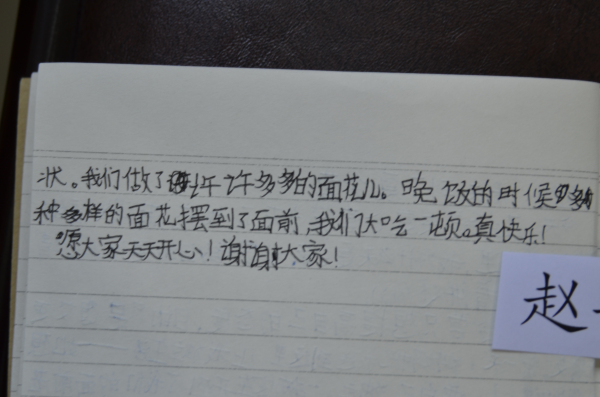 状。我们做了许许多多的面花儿。晚饭的时候多
种多样的面花摆到了面前,我们大吃一顿。真快乐!
愿大家天天开心!谢谢大家!
赵